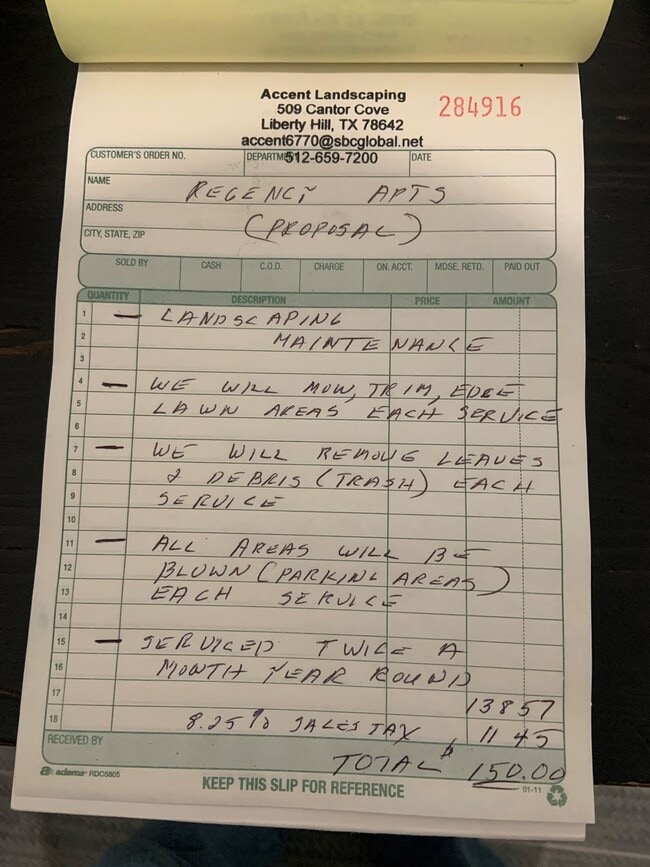 Accent Landscaping
509 Cantor Cove
284916
Liberty Hill, TX 78642
accent6770@sbcglobal.net
CUSTOMER'S ORDER NO. DEPARTMENT 512-659-7200 DATE
NAME REGENCY APTS
ADDRESS
(PROPOSAL)
CITY, STATE, ZIP
SOLD BY CASH C.O.D. CHARGE ON. ACCT. MDSE. RETD. PAID OUT
QUANTITY DESCRIPTION PRICE AMOUNT
1 — LANDSCAPING
2 MAINTENANCE
3
4 — WE WILL MOW, TRIM, EDGE
5 LAWN AREAS EACH SERVICE
6
7 — WE WILL REMOVE LEAVES
8 & DEBRIS (TRASH) EACH
9 SERVICE
10
11 — ALL AREAS WILL BE
12 BLOWN (PARKING AREAS)
13 EACH SERVICE
14
15 — SERVICED TWICE A
16 MONTH YEAR ROUND
17 138 57
18 8.25% SALES TAX, 11 45
RECEIVED BY
TOTAL $ 150.00
adams RDC5805
KEEP THIS SLIP FOR REFERENCE
01-11